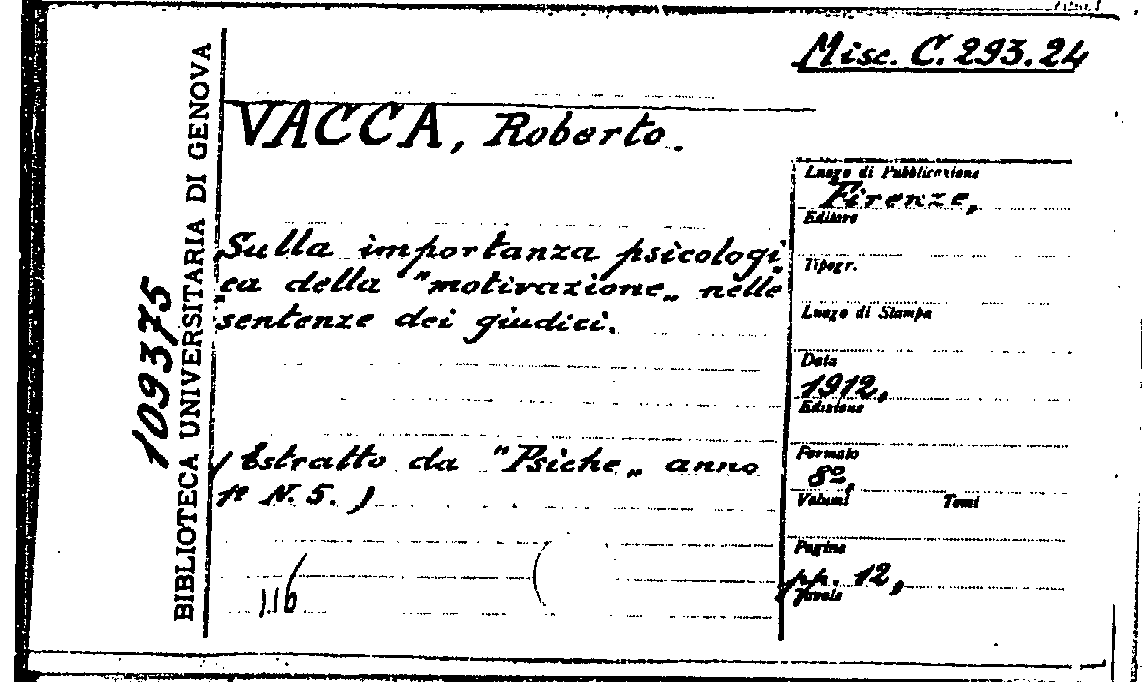 Misc. C. 293. 24
VACCA, Roberto.
Sulla importanza psicologi„
"ca della "motivazione„ nelle
sentenze dei giudici.
(Estratto da "Psiche„ anno
N. 5.)
116
109375
BIBLIOTECA UNIVERSITARIA DI GENOVA
Luogo di Pubblicazione
Firenze,
Editore
Tipogr.
Luogo di Stampa
Data
1912,
Edizione
Formato
8º,
Volumi Tomi
Pagine
pp. 12,
Tavole